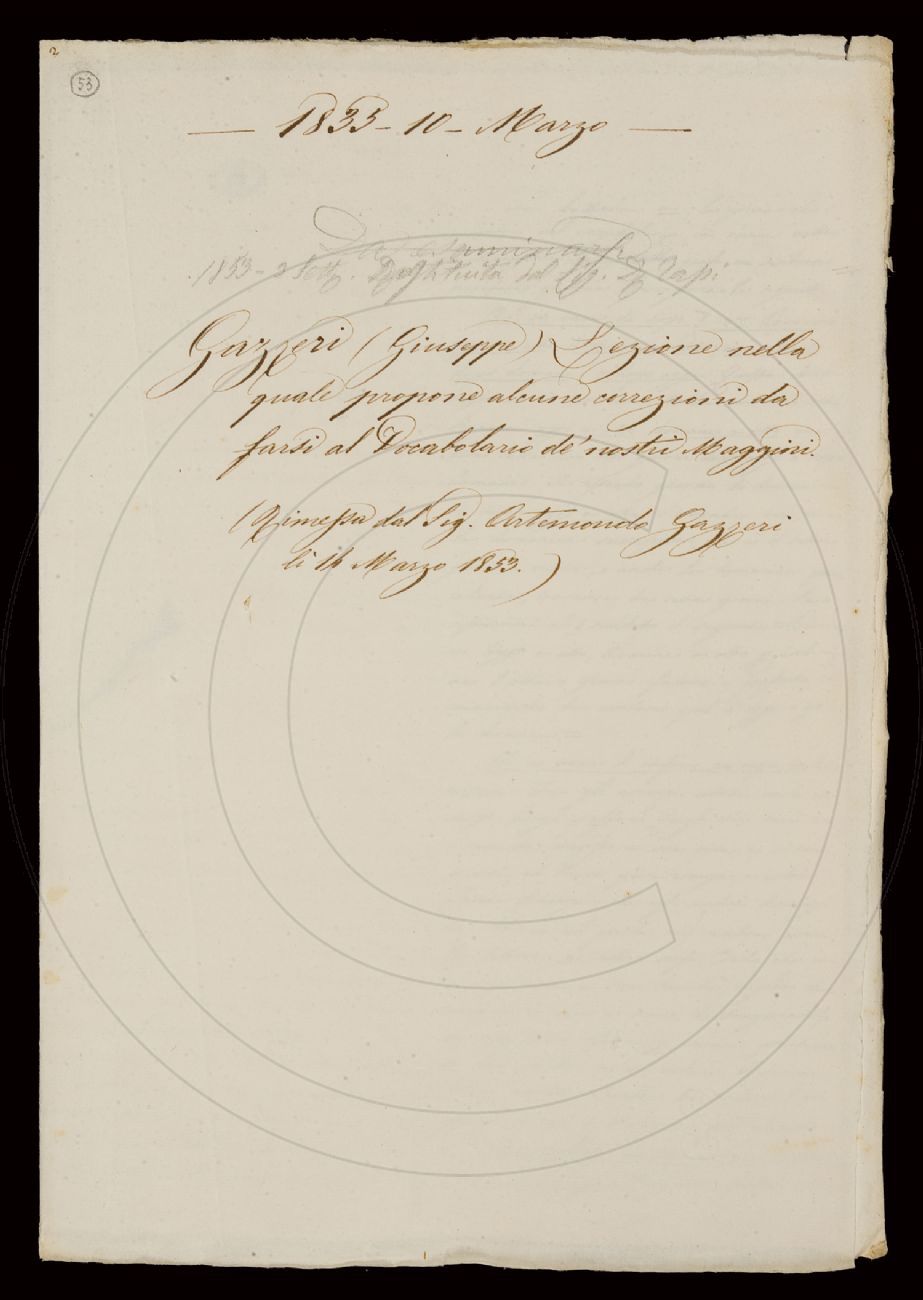 2
53
— 1835 - 10 - Marzo —
Da esaminarsi
1853 - 2 Sett. Restituita dal
Gazzeri (Giuseppe) Lezione nella
quale propone alcune correzioni da
farsi al Vocabolario de' nostri Maggiori.
(Rimessa dal Sig. Artemondo Gazzeri
li 14 Marzo 1853.)